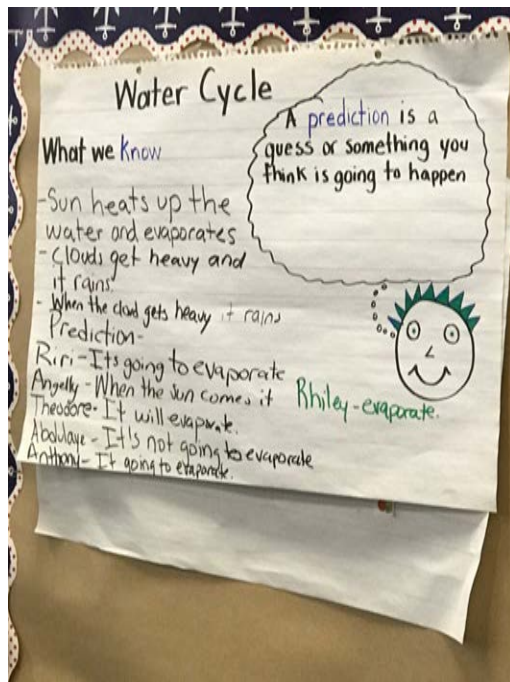 Water Cycle
A prediction is a
guess or something you
think is going to happen
What we know
-Sun heats up the
water and evaporates
-Clouds get heavy and
it rains.
- When the cloud gets heavy it rains
Prediction-
Riri-Its going to evaporate
Angelly-When the sun comes it
Rhiley-evaporate.
Theodore-It will evaporate.
Abdulaye-It's not going to evaporate
Anthony-It going to evaporate.